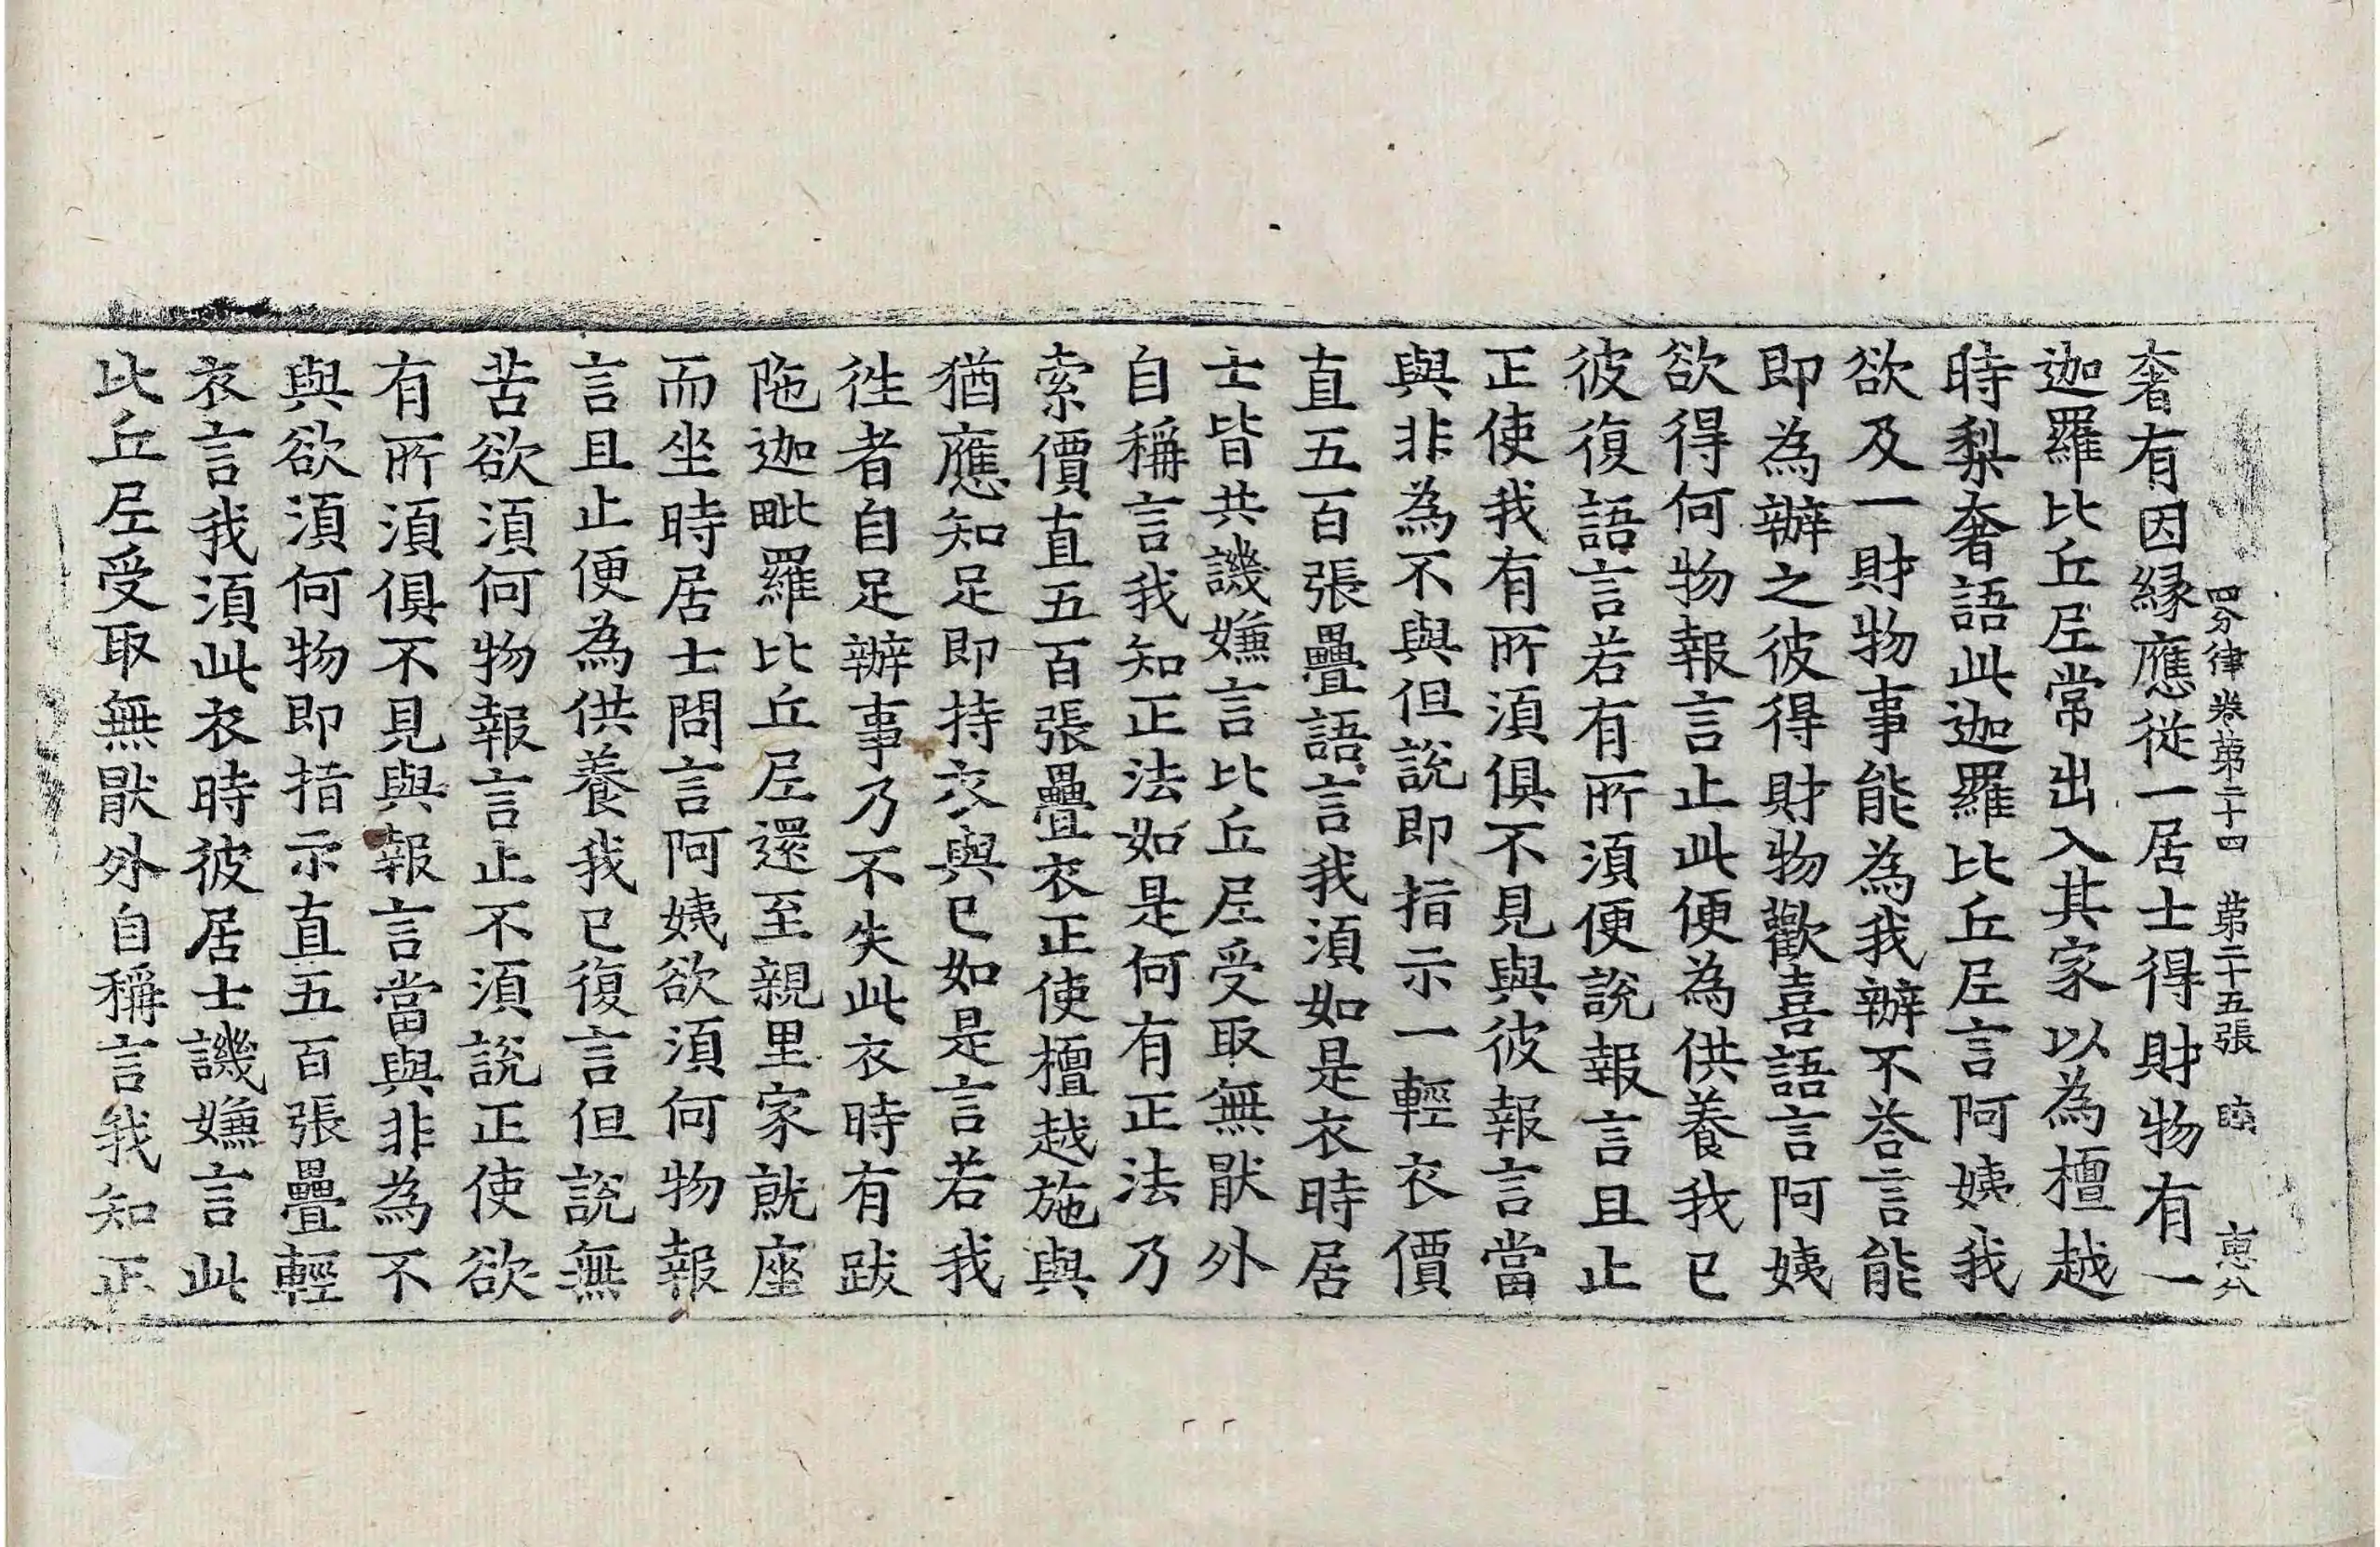 四分律卷第二十四　第二十五張　惠八
奢有因緣應從一居士得財物有一
迦羅比丘尼常出入其家以為檀越
時梨奢語此迦羅比丘尼言阿姨我
欲及一財物事能為我辦不荅言能
即為辦之彼得財物歡喜語言阿姨
欲得何物報言止此便為供養我已
彼復語言若有所須便說報言且止
正使我有所須俱不見與彼報言當
與非為不與但說即指示一輕衣價
直五百張疊語言我須如是衣時居
士皆共譏嫌言比丘尼受取無猒外
自稱言我知正法如是何有正法乃
索價直五百張疊衣正使檀越施與
猶應知足即持衣與已如是言若我
徃者自足辦事乃不失此衣時有跋
陁迦毗羅比丘尼還至親里家就座
而坐時居士問言阿姨欲須何物報
言且止便為供養我已復言但說無
苦欲須何物報言止不須說正使欲
有所須俱不見與報言當與非為不
與欲須何物即指示直五百張疊輕
衣言我須此衣時彼居士譏嫌言此
比丘尼受取無猒外自稱言我知正